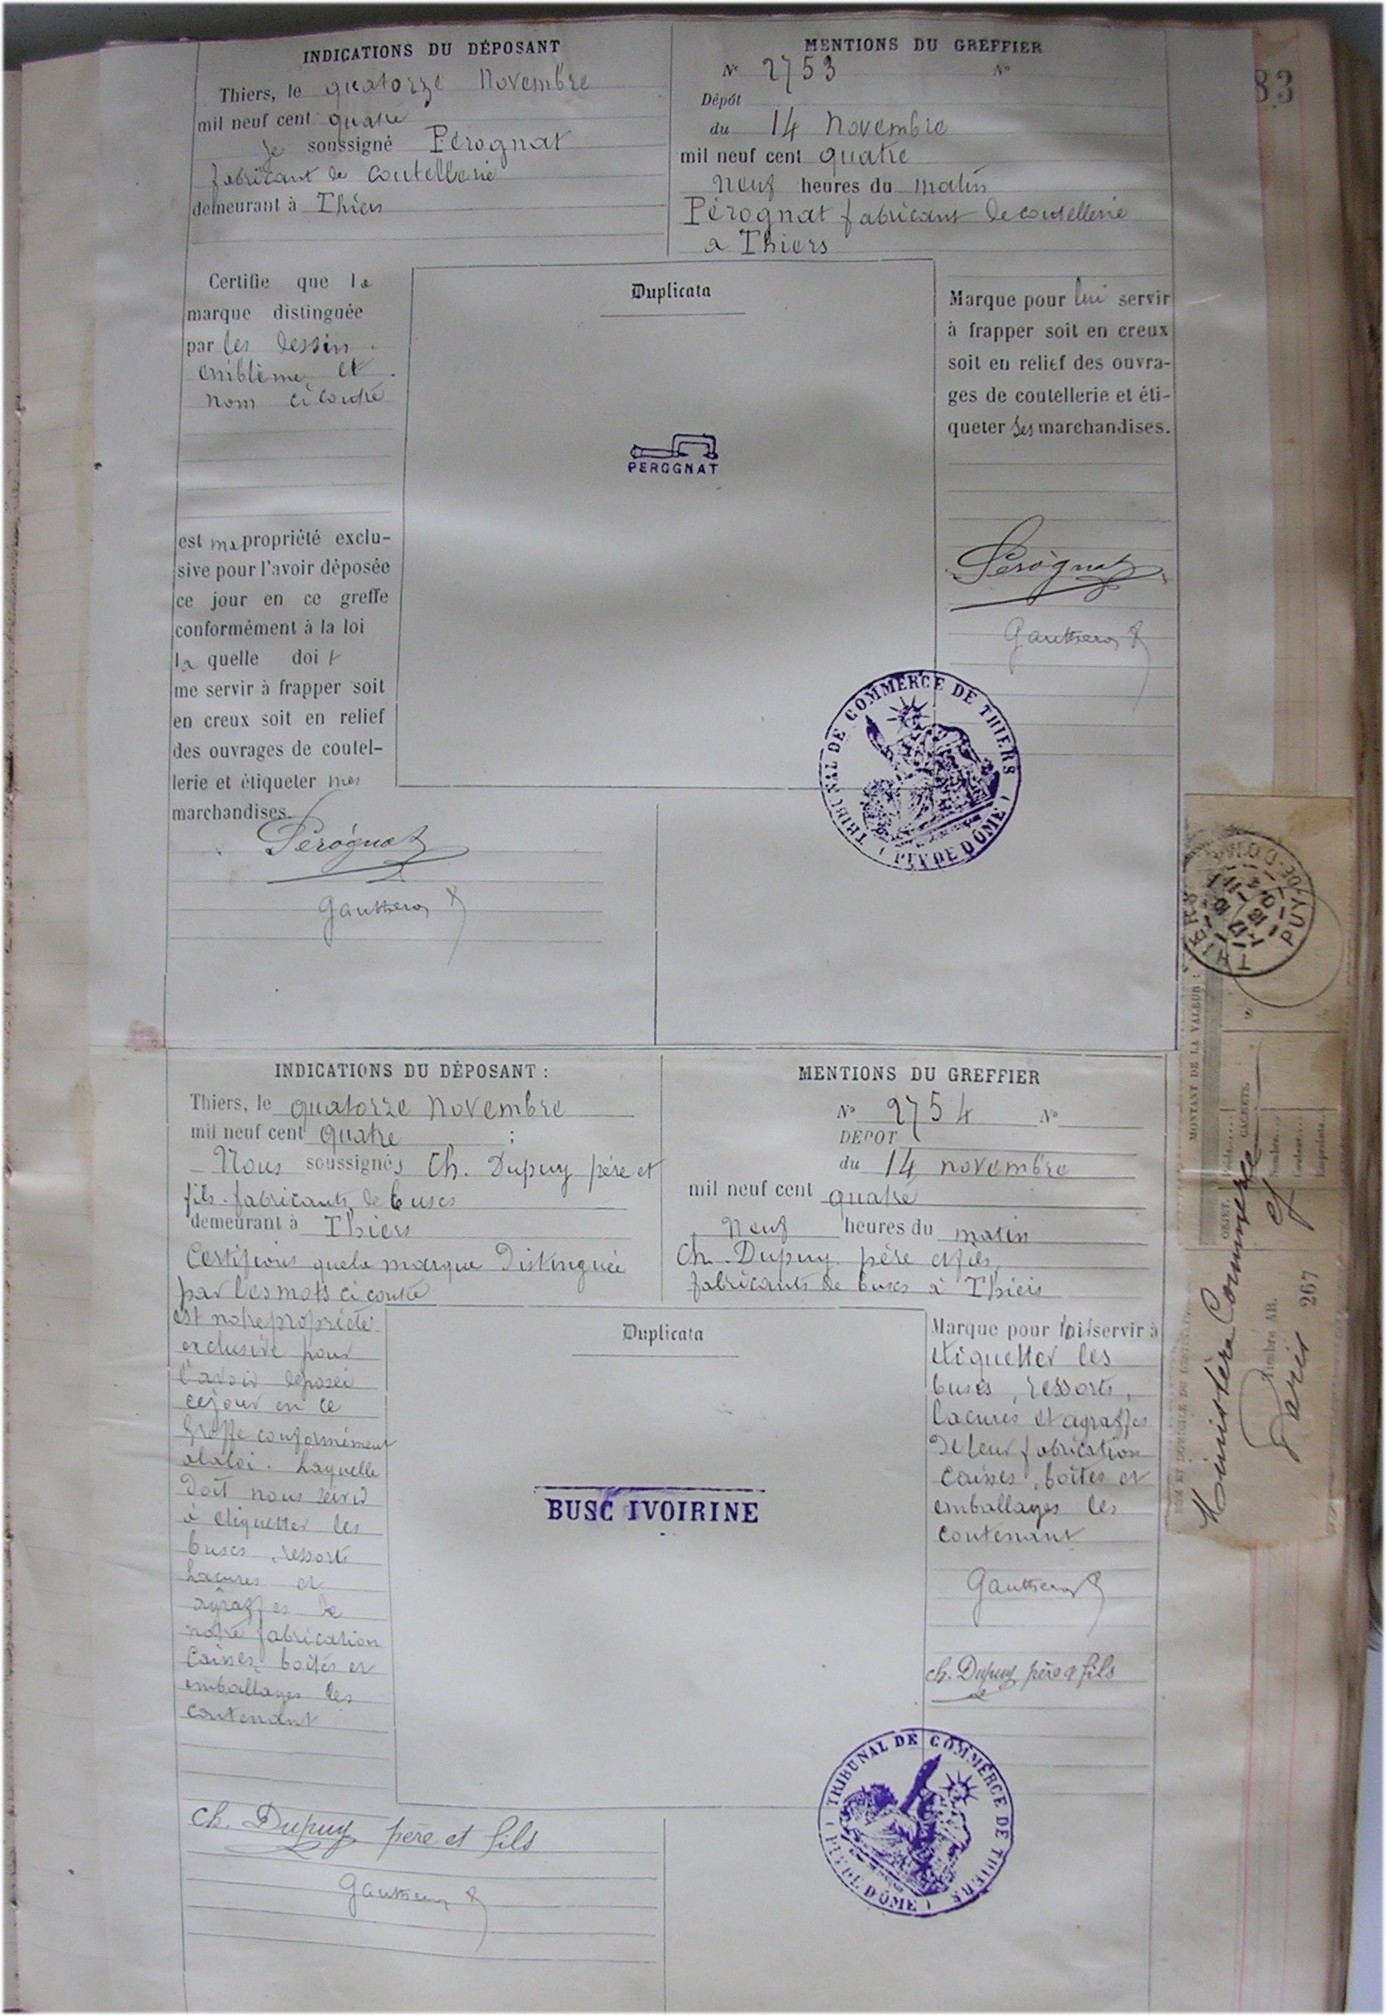 83
INDICATIONS DU DÉPOSANT
Thiers, le quatorze Novembre
mil neuf cent quatre
je soussigné Pérognat
fabricant de coutellerie
demeurant à Thiers
MENTIONS DU GREFFIER
No 2753 No
Dépôt
du 14 Novembre
mil neuf cent quatre
neuf heures du matin
Pérognat fabricant de coutellerie
a Thiers
Certifie que la
marque distinguée
par les dessin
emblème et
nom ci contre
est ma propriété exclu-
sive pour l'avoir déposée
ce jour en ce greffe
conformément à la loi
la quelle doit
me servir à frapper soit
en creux soit en relief
des ouvrages de coutel-
lerie et étiqueter mes
marchandises.
Pérognat
Gautheron
Duplicata
PEROGNAT
Marque pour lui servir
à frapper soit en creux
soit en relief des ouvra-
ges de coutellerie et éti-
queter ses marchandises.
Pérognat
Gautheron
TRIBUNAL DE COMMERCE DE THIERS
(PUY DE DÔME)
INDICATIONS DU DÉPOSANT :
Thiers, le quatorze Novembre
mil neuf cent quatre ;
Nous soussignés Ch. Dupuy père et
fils fabricants de buscs
demeurant à Thiers
Certifions que la marque Distinguée
par les mots ci contre
MENTIONS DU GREFFIER
No 2754 No
DÉPOT
du 14 novembre
mil neuf cent quatre
Neuf heures du matin
Ch. Dupuy père et fils
fabricants de buscs à Thiers
est notre propriété
exclusive pour
l'avoir déposée
ce jour en ce
Greffe conformément
a la loi. Laquelle
doit nous servir
à etiquetter les
buscs, ressorts
Lacures et
agraffes de
notre fabrication
Caisses boites et
emballages les
contenant
Ch. Dupuy père et fils
Gautheron
Duplicata
BUSC IVOIRINE
Marque pour servir à
etiquetter les
buscs, ressorts,
lacures et agraffes
de leur fabrication
caisses, boites et
emballages les
contenant
Gautheron
Ch. Dupuy père & fils
TRIBUNAL DE COMMERCE DE THIERS
(PUY DE DÔME)
THIERS
PUY-DE-DOME
MONTANT DE LA VALEUR :
OBJET.
CACHETS.
Ministère Commerce
Timbre AR.
Paris 267